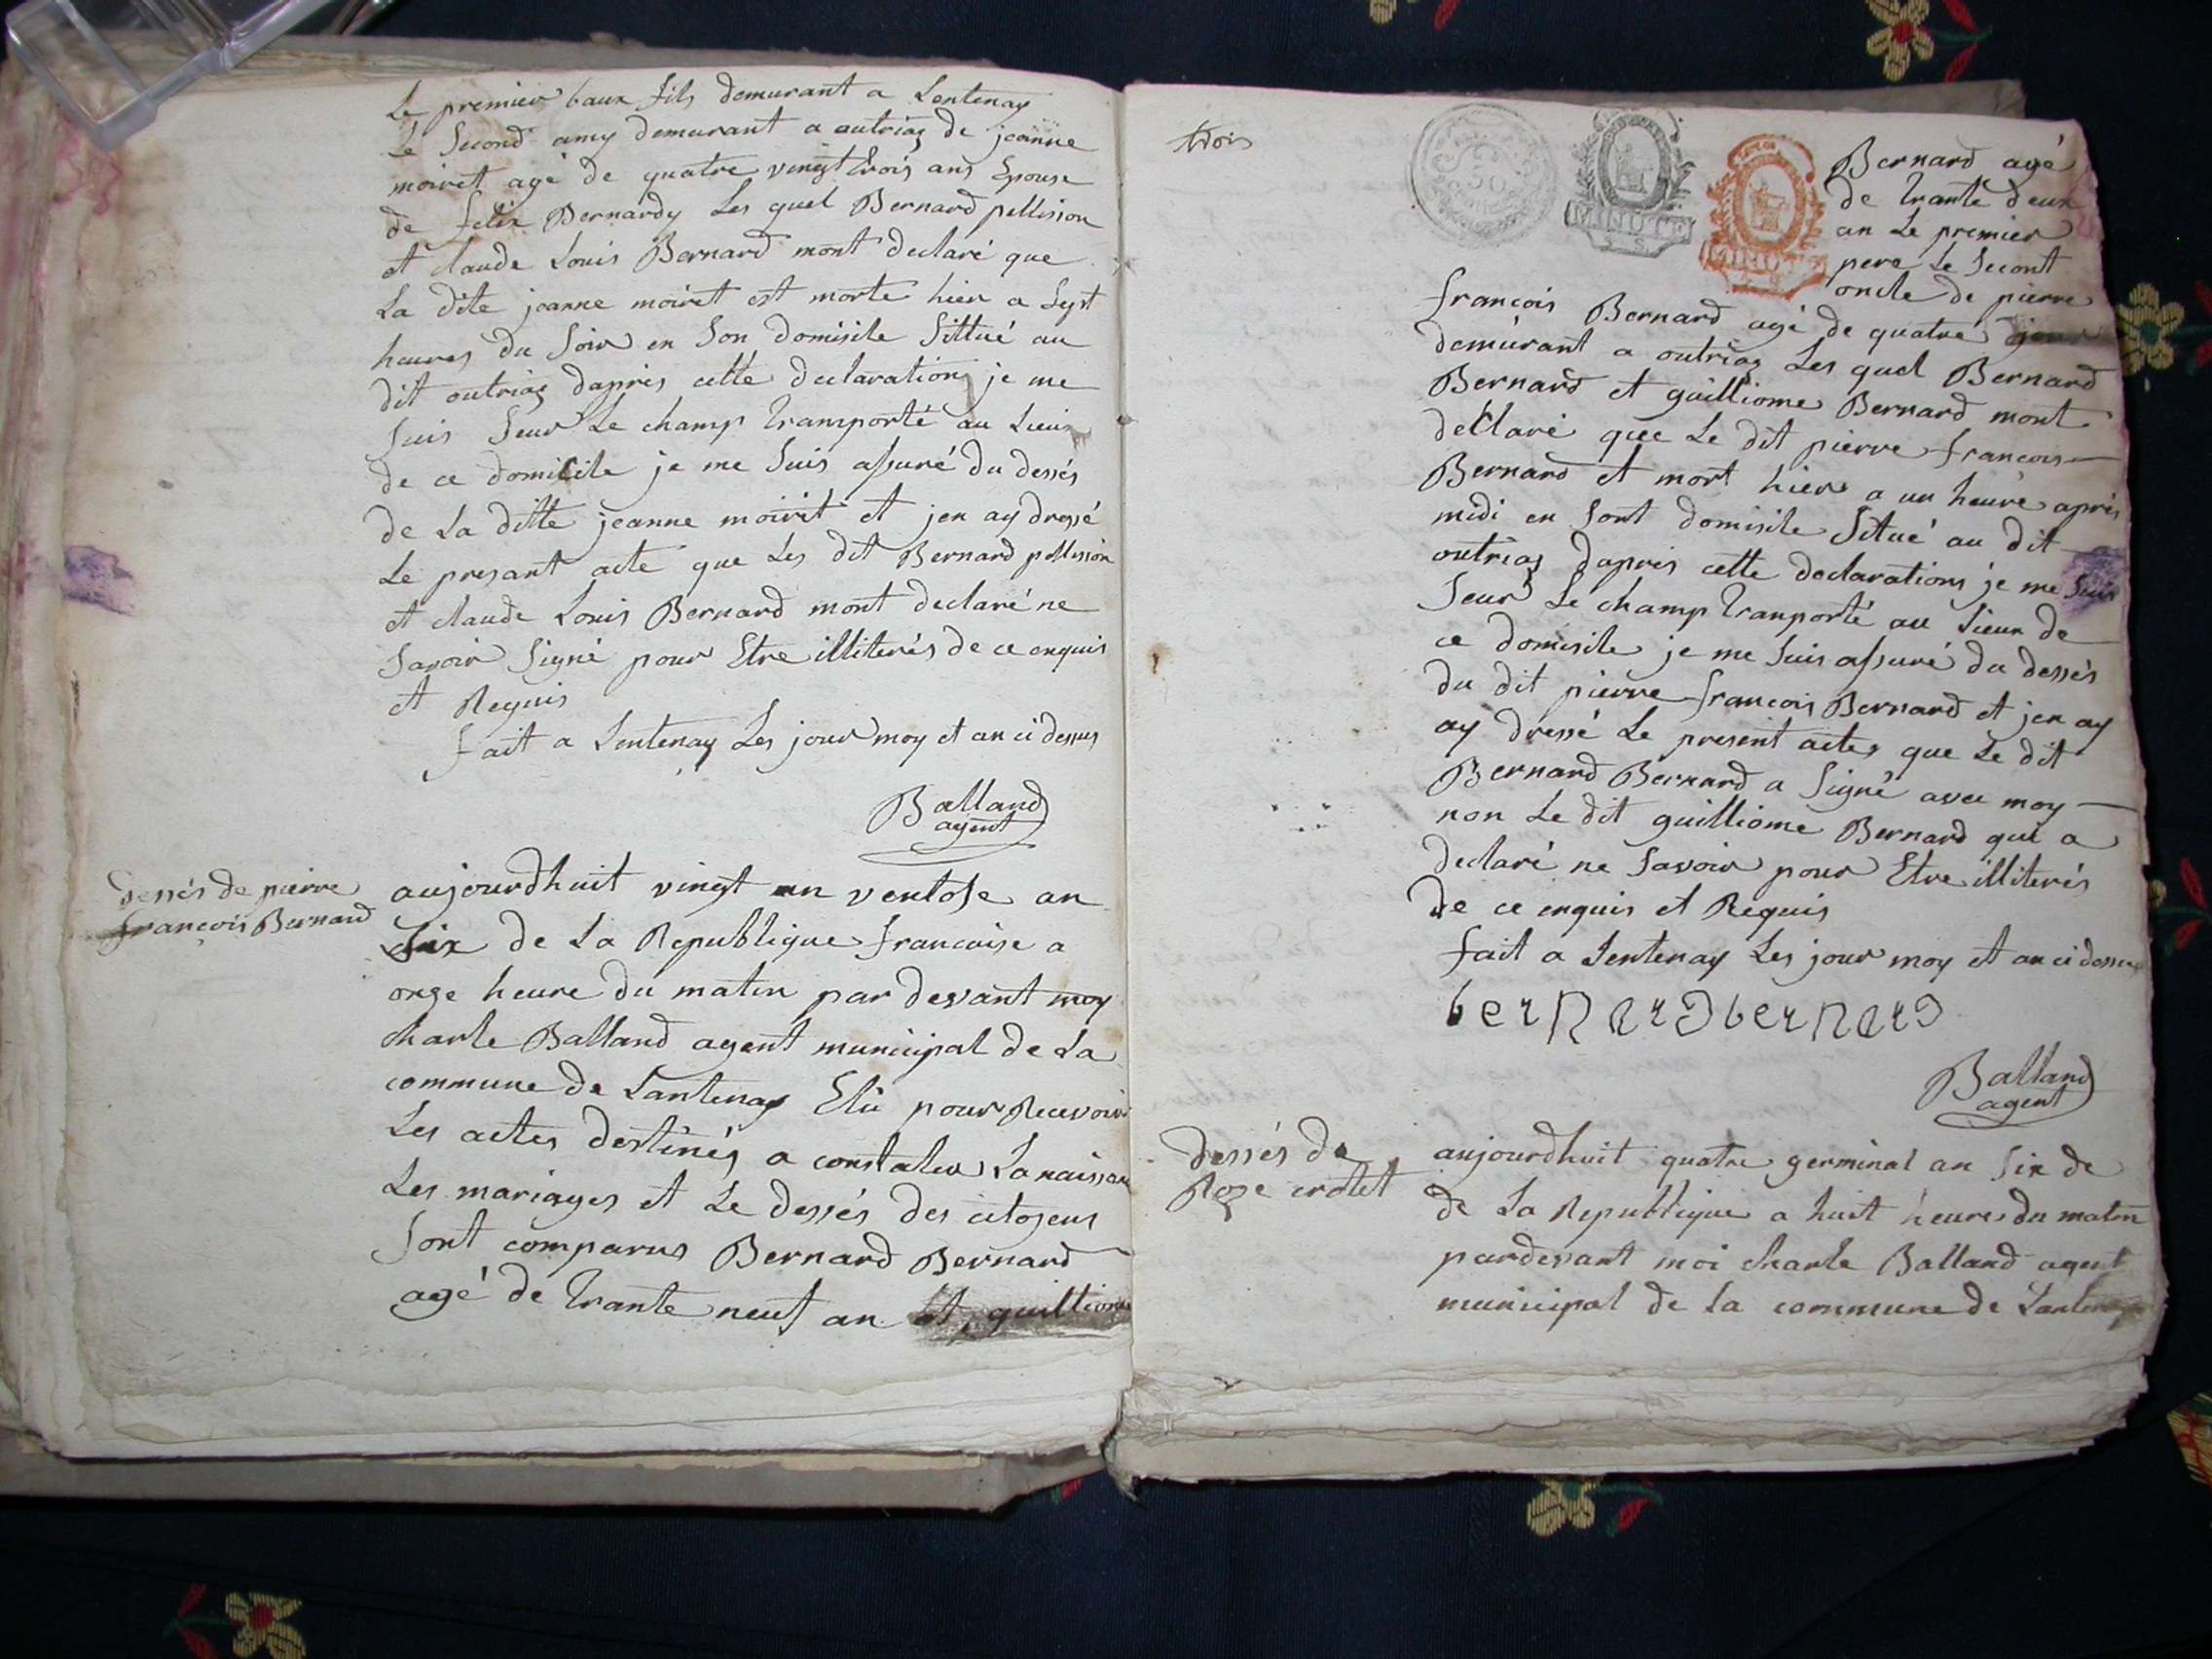 Le premier baux fils demurant a Lentenay
Le Second amy demurant a outriaz de jeanne
moiret agé de quatre vingt trois ans Epouse
de felix Bernardy Les quel Bernard pellission
et claude Louis Bernard mont declaré que
La dite jeanne moiret est morte hier a Sept
heures du Soir en Son domisile Sittué au
dit outriaz dapres cette declaration je me
Suis Seur Le champ transporté au Lieux
de ce domicile je me Suis assuré du dessés
de La ditte jeanne moiret et jen ay dressé
Le presant acte que Les dit Bernard pellission
et claude Louis Bernard mont declaré ne
Savoir Signé pour Etre illiterés de ce enquis
et Requis
fait a Lentenay Les jour moy et an ci dessus
Balland
agent
dessés de pierre
françois Bernard
aujourdhuit vingt un ventose an
Six de La Republique francaise a
onze heure du matin par devant moy
charle Balland agent municipal de La
commune de Lantenay Elû pour Recevoir
Les actes destinés a constater La naissan
Les mariages et Le dessés des citoyens
Sont comparus Bernard Bernard
agé de trante neuf an et guilliome
trois
50
MINUTE
MINUTE
Bernard agé
de trante deux
an Le premier
pere Le Secont
oncle de pierre
françois Bernard agé de quatre jour
demurant a outriaz Les quel Bernard
Bernard et guilliome Bernard mont
declaré que Le dit pierre francois
Bernard et mort hier a un heure aprés
midi en Sont domisile Situé au dit
outriaz dapres cette declarations je me Suis
Seur Le champ tranporté au Lieux de
ce domisile je me Suis assuré du dessés
du dit pierre francois Bernard et jen ay
ay dressé Le present actes que Le dit
Bernard Bernard a Signé avec moy
non Le dit guilliome Bernard qui a
declaré ne Savoir pour Etre illiterés
de ce enquis et Requis
fait a Lentenay Les jour moy et an ci dessus
bernard bernard
Balland
agent
dessés de
Roze crolet
aujourdhuit quatre germinal an Six de
de La Republique a huit heures du matin
pardevant moi charle Balland agent
municipal de La commune de Lantenay